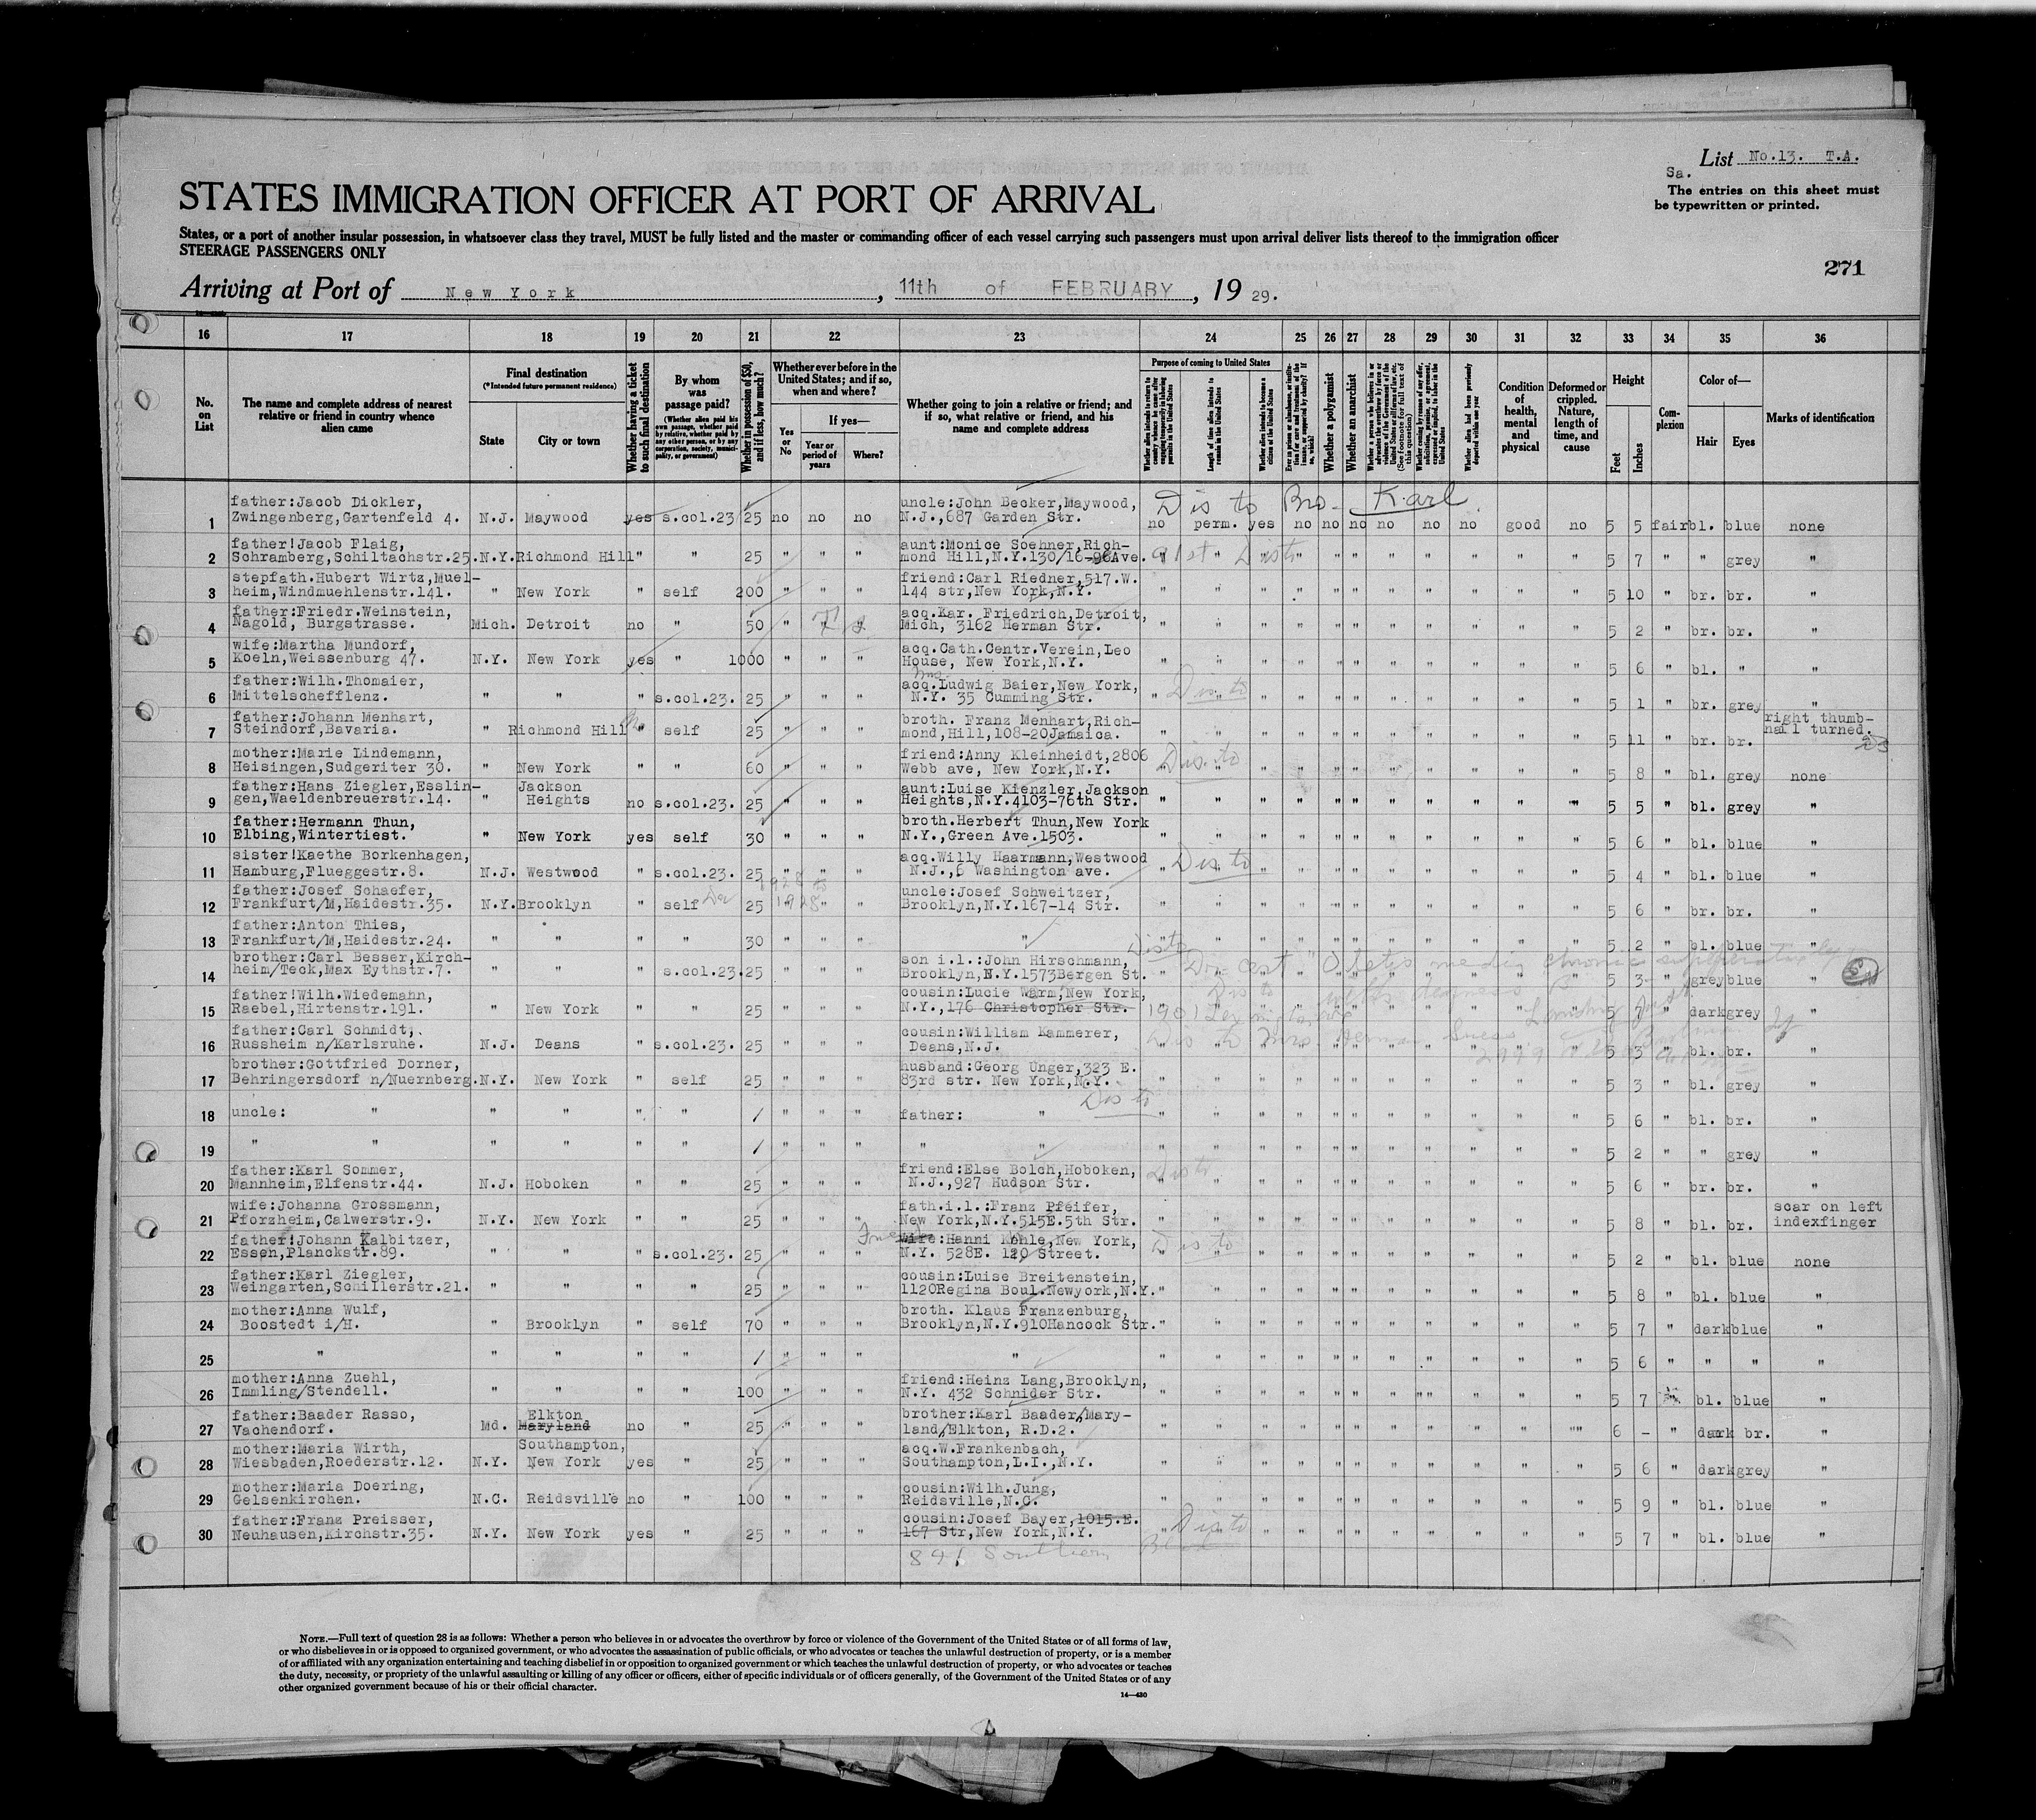 List No.13. T.A.
Sa.
The entries on this sheet must
be typewritten or printed.
STATES IMMIGRATION OFFICER AT PORT OF ARRIVAL
States, or a port of another insular possession, in whatsoever class they travel, MUST be fully listed and the master or commanding officer of each vessel carrying such passengers must upon arrival deliver lists thereof to the immigration officer
STEERAGE PASSENGERS ONLY
271
Arriving at Port of New York, 11th of FEBRUARY, 19 29.
16 17 18 19 20 21 22 23 24 25 26 27 28 29 30 31 32 33 34 35 36
No. on List
The name and complete address of nearest relative or friend in country whence alien came
Final destination
(*Intended future permanent residence)
State
City or town
Whether having a ticket to such final destination
By whom was passage paid?
(Whether alien paid his own passage, whether paid by relative, whether paid by any other person, or by any corporation, society, municipality, or government)
Whether in possession of $50, and if less, how much?
Whether ever before in the United States; and if so, when and where?
Yes or No
If yes—
Year or period of years
Where?
Whether going to join a relative or friend; and if so, what relative or friend, and his name and complete address
Purpose of coming to United States
Whether alien intends to return to country whence he came after engaging temporarily in laboring pursuits in the United States
Length of time alien intends to remain in the United States
Whether alien intends to become a citizen of the United States
Whether a polygamist
Whether an anarchist
Whether alien had been previously deported within one year
Condition of health, mental and physical
Deformed or crippled. Nature, length of time, and cause
Height
Feet
Inches
Complexion
Color of—
Hair
Eyes
Marks of identification
Dis to Bro- Karl
1 father:Jacob Dickler, Zwingenberg,Gartenfeld 4. N.J. Maywood yes s.col.23 25 no no no uncle:John Becker,Maywood, N.J.,687 Garden Str. no perm. yes no no no no no no good no 5 5 fair bl. blue none
2 father!Jacob Flaig, Schramberg,Schiltachstr.25. N.Y. Richmond Hill " " 25 " " " aunt:Monice Soehner,Richmond Hill,N.Y.130/16-96Ave. " " " " " " " " " " " 5 7 " " grey "
3 stepfath.Hubert Wirtz,Muelheim,Windmuehlenstr.141. " New York " self 200 " " " friend:Carl Riedner,517.W. 144 str,New York,N.Y. " " " " " " " " " " " 5 10 " br. br. "
4 father:Friedr.Weinstein, Nagold, Burgstrasse. Mich. Detroit no " 50 " acq.Kar. Friedrich,Detroit, Mich, 3162 Herman Str. " " " " " " " " " " " 5 2 " br. br. "
5 wife:Martha Mundorf, Koeln,Weissenburg 47. N.Y. New York yes " 1000 " " " acq.Cath.Centr.Verein,Leo House, New York,N.Y. " " " " " " " " " " " 5 6 " bl. " "
6 father:Wilh.Thomaier, Mittelschefflenz. " " " s.col.23. 25 " " " acq.Ludwig Baier,New York, N.Y. 35 Cumming Str. " Dis to " " " " " " " " " 5 1 " br. grey "
7 father:Johann Menhart, Steindorf,Bavaria. " Richmond Hill " self 25 " " " broth. Franz Menhart,Richmond,Hill,108-20Jamaica. " " " " " " " " " " " 5 11 " br. br. right thumbnail turned.
8 mother:Marie Lindemann, Heisingen,Sudgeriter 30. " New York " " 60 " " " friend:Anny Kleinheidt,2806 Webb ave, New York,N.Y. Dis to " " " " " " " " " " 5 8 " bl. grey none
9 father:Hans Ziegler,Esslingen,Waeldenbreuerstr.14. " Jackson Heights no s.col.23. 25 " " " aunt:Luise Kienzler,Jackson Heights,N.Y.4103-76th Str. " " " " " " " " " " " 5 5 " bl. grey "
10 father:Hermann Thun, Elbing,Wintertiest. " New York yes self 30 " " " broth.Herbert Thun,New York N.Y.,Green Ave.1503. " " " " " " " " " " " 5 6 " bl. blue "
11 sister!Kaethe Borkenhagen, Hamburg,Flueggestr.8. N.J. Westwood " s.col.23. 25 " " " acq.Willy Haarmann,Westwood N.J.,6 Washington ave. " Dis to " " " " " " " " " 5 4 " bl. blue "
12 father:Josef Schaefer, Frankfurt/M,Haidestr.35. N.Y. Brooklyn " self 25 1928 to 1928 " uncle:Josef Schweitzer, Brooklyn,N.Y.167-14 Str. " " " " " " " " " " " 5 6 " br. br. "
13 father:Anton Thies, Frankfurt/M,Haidestr.24. " " " " 30 " " " " " " " " " " " " " " " 5 2 " bl. blue "
14 brother:Carl Besser,Kirchheim/Teck,Max Eythstr.7. " " " s.col.23. 25 " " " son i.l.:John Hirschmann, Brooklyn,N.Y.1573Bergen St. Dis to " " " " " " " " " " 5 3 " grey blue "
15 father!Wilh.Wiedemann, Raebel,Hirtenstr.191. " New York " " 25 " " " cousin:Lucie Warm,New York, N.Y.,176 Christopher Str. " " " " " " " " " " " 5 7 " dark grey "
16 father:Carl Schmidt, Russheim n/Karlsruhe. N.J. Deans " s.col.23. 25 " " " cousin:William Kammerer, Deans,N.J. " " " " " " " " " " " 5 3 " bl. br. "
17 brother:Gottfried Dorner, Behringersdorf n/Nuernberg. N.Y. New York " self 25 " " " husband:Georg Unger,323 E. 83rd str. New York,N.Y. " " " " " " " " " " " 5 3 " bl. grey "
Dis to
18 uncle: " " " " " / " " " father: " " " " " " " " " " " " 5 6 " bl. br. "
19 " " " " " " / " " " " " " " " " " " " " " " " 5 2 " " grey "
20 father:Karl Sommer, Mannheim,Elfenstr.44. N.J. Hoboken " " 25 " " " friend:Else Bolch,Hoboken, N.J.,927 Hudson Str. " " " " " " " " " " 5 6 " br. br. "
21 wife:Johanna Grossmann, Pforzheim,Calwerstr.9. N.Y. New York " " 25 " " " fath.i.l.:Franz Pfeifer, New York,N.Y.515E.5th Str. " " " " " " " " " " " 5 8 " bl. br. scar on left indexfinger
22 father!Johann Kalbitzer, Essen,Planckstr.89. " " " s.col.23. 25 " " " wife:Hanni Kohle,New York, N.Y. 528E. 120 Street. Dis to " " " " " " " " " 5 2 " bl. blue none
23 father:Karl Ziegler, Weingarten,Schillerstr.21. " " " " 25 " " " cousin:Luise Breitenstein, 1120Regina Boul.Newyork,N.Y. " " " " " " " " " " " 5 8 " bl. blue "
24 mother:Anna Wulf, Boostedt i/H. " Brooklyn " self 70 " " " broth. Klaus Franzenburg, Brooklyn,N.Y.910Hancock Str. " " " " " " " " " " " 5 7 " dark blue "
25 " " " " " / " " " " " " " " " " " " " " " 5 6 " " " "
26 mother:Anna Zuehl, Immling/Stendell. " " " " 100 " " " friend:Heinz Lang,Brooklyn, N.Y. 432 Schnider Str. " " " " " " " " " " " 5 7 " bl. blue "
27 father:Baader Rasso, Vachendorf. Md. Elkton Maryland no " 25 " " " brother:Karl Baader/Maryland/Elkton, R.D.2. " " " " " " " " " " " 6 - " dark br. "
28 mother:Maria Wirth, Wiesbaden,Roederstr.12. N.Y. Southampton, New York yes " 25 " " " acq.W.Frankenbach, Southampton,L.I.,N.Y. " " " " " " " " " " " 5 6 " dark grey "
29 mother:Maria Doering, Gelsenkirchen. N.C. Reidsville no " 100 " " " cousin:Wilh.Jung, Reidsville,N.C. " " " " " " " " " " " 5 9 " bl. blue "
30 father:Franz Preisser, Neuhausen,Kirchstr.35. N.Y. New York yes " 25 " " " cousin:Josef Bayer,1015.E. 167 Str,New York,N.Y. " Dis to " " " " " " " " " 5 7 " bl. blue "
891 Southern
NOTE.—Full text of question 28 is as follows: Whether a person who believes in or advocates the overthrow by force or violence of the Government of the United States or of all forms of law,
or who disbelieves in or is opposed to organized government, or who advocates the assassination of public officials, or who advocates or teaches the unlawful destruction of property, or is a member
of or affiliated with any organization entertaining and teaching disbelief in or opposition to organized government or which teaches the unlawful destruction of property, or who advocates or teaches
the duty, necessity, or propriety of the unlawful assaulting or killing of any officer or officers, either of specific individuals or of officers generally, of the Government of the United States or of any
other organized government because of his or their official character.
14—430